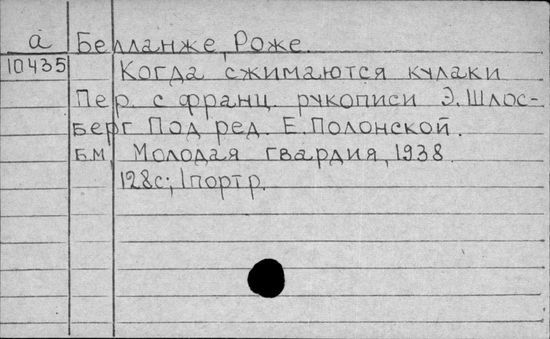 а Белланже, Роже.
10435 Когда сжимаются кулаки
Пер. с франц. рукописи Э.Шлос-
берг Под ред. Е.Полонской.
Б.М, Молодая гвардия, 1938.
128с; 1портр.